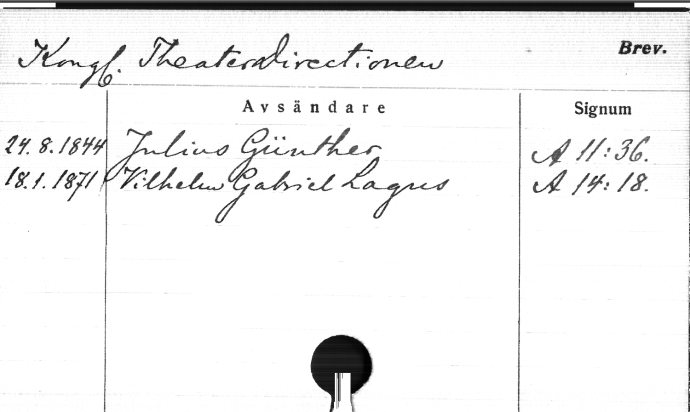 Kongl. Theaterdirectionen Brev.
Avsändare Signum
24.8.1844 Julius Günther A 11:36.
18.1.1871 Vilhelm Gabriel Lagus A 14:18.